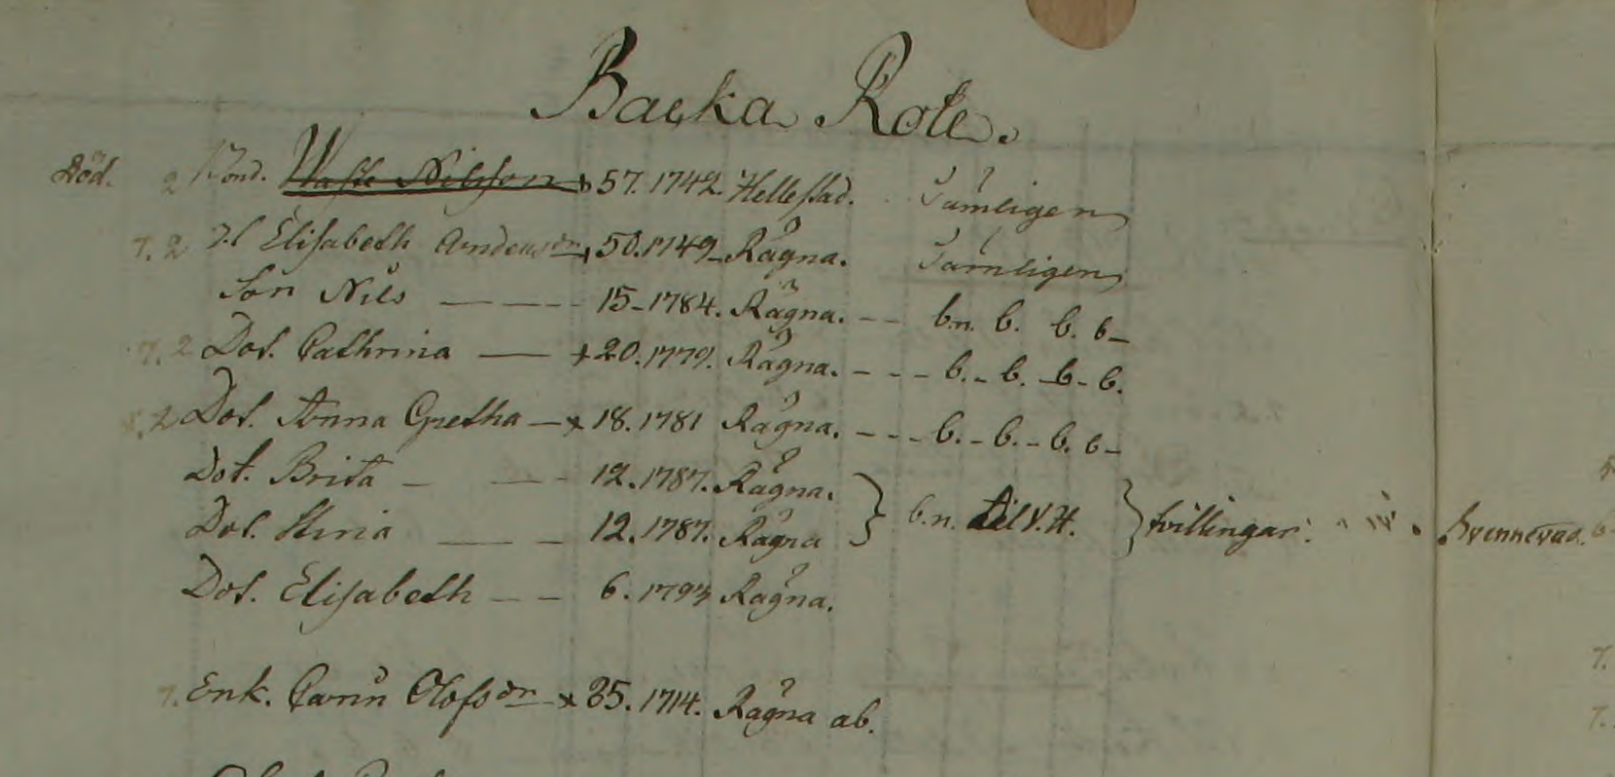 Backa Rote.
död. 2 Bond. Waste Nilsson 57. 1742. Hellestad. Tämligen
7. 2 H Elisabeth Andersdr 50. 1749 Rägna. Tämligen
Son Nils — 15 - 1784. Rägna. -- b.n. b. b. b -
7. 2 Dot. Cathrina — + 20. 1779. Rägna. - - - b. - b. - b - b.
2 Dot. Anna Gretha — + 18. 1781 Rägna. - - - b. - b. - b. b -
Dot. Brita - — 12. 1787. Rägna.
Dot. Stina — 12. 1787. Rägna } b.n. til V. H. } tvillingar.
Dot. Elisabeth -- 6. 1793 Rägna.
7. Enk. Carin Olofsdr + 85. 1714. Rägna ab.